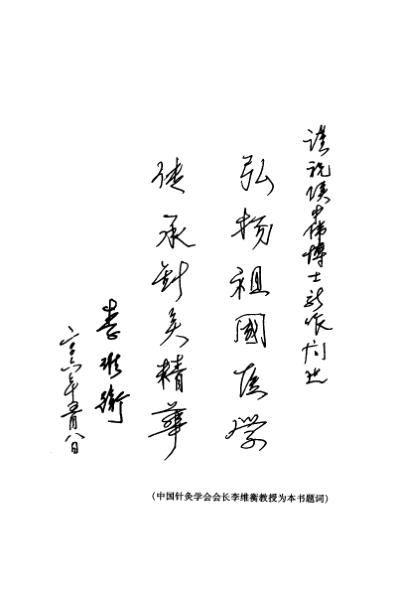 谨祝侯中伟博士新作问世
弘扬祖國医学
传承針灸精華
李维衡
二〇〇六年五月八日
(中国针灸学会会长李维衡教授为本书题词)